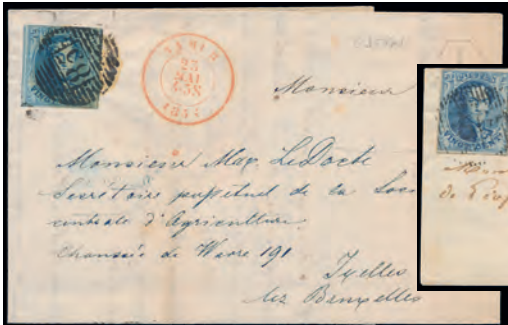 NAMUR
25
MAI
1854
Monsieur
Monsieur Max. LeDocte
Secrétaire perpetuel de la Soc
centrale d'Agriculture
Chaussée de Wavre 191
Ixelles
lez Bruxelles
VINGT CENT